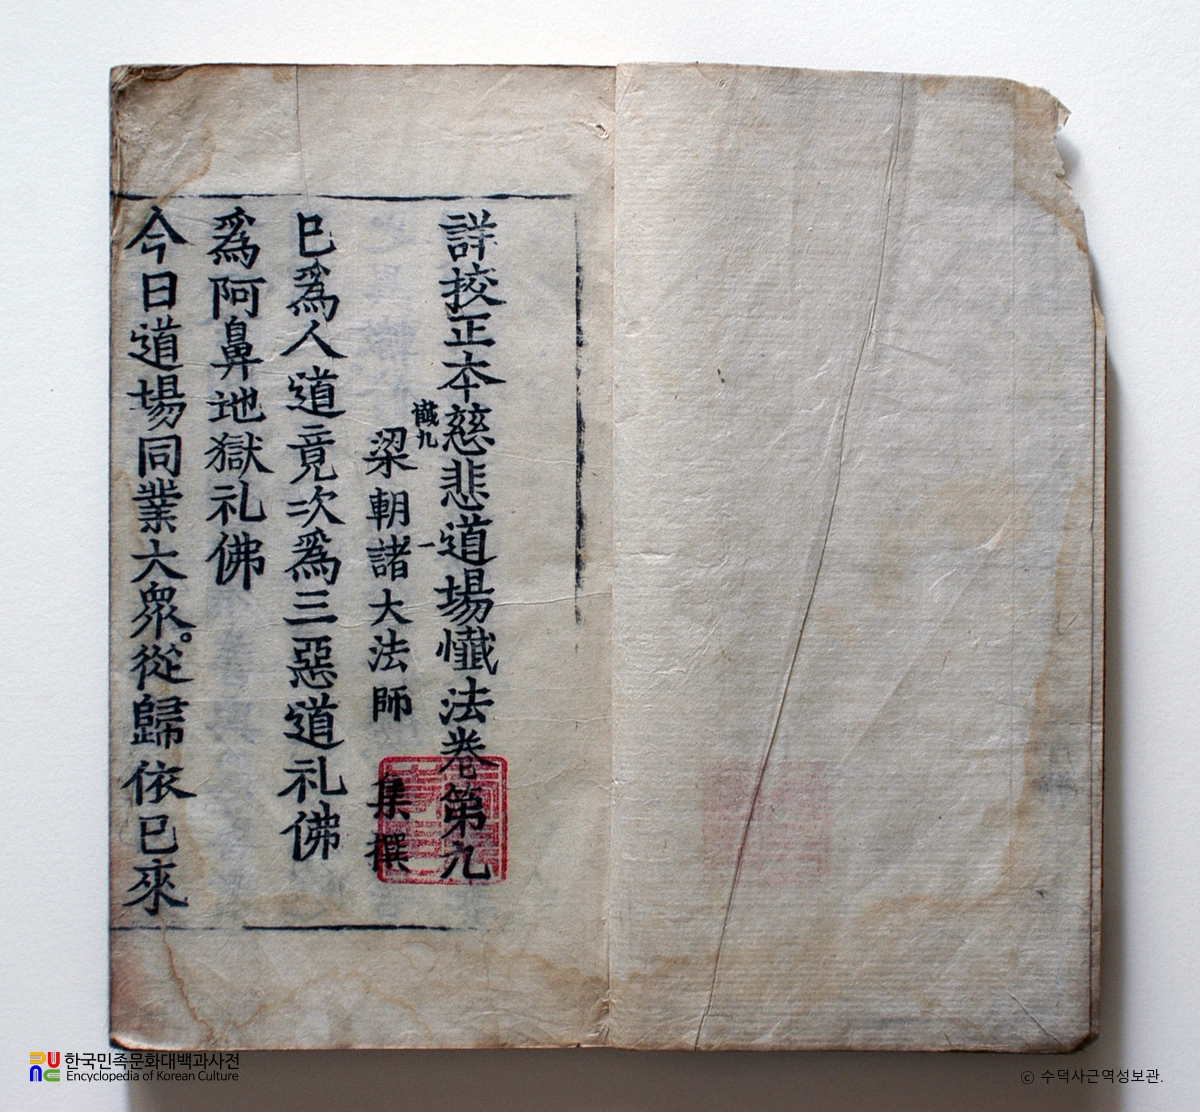 詳校正本慈悲道場懴法卷第九
懴九
一
梁朝諸大法師 集撰
已爲人道竟次爲三惡道礼佛
爲阿鼻地獄礼佛
今日道場同業大衆。從歸依已來
한국민족문화대백과사전
Encyclopedia of Korean Culture
ⓒ 수덕사근역성보관.